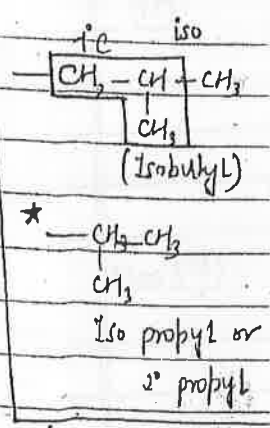 1°C iso
— CH₂ — CH — CH₃
CH₃
(Isobutyl)
★ — CH₂ — CH₃
CH₃
Iso propyl or
2° propyl